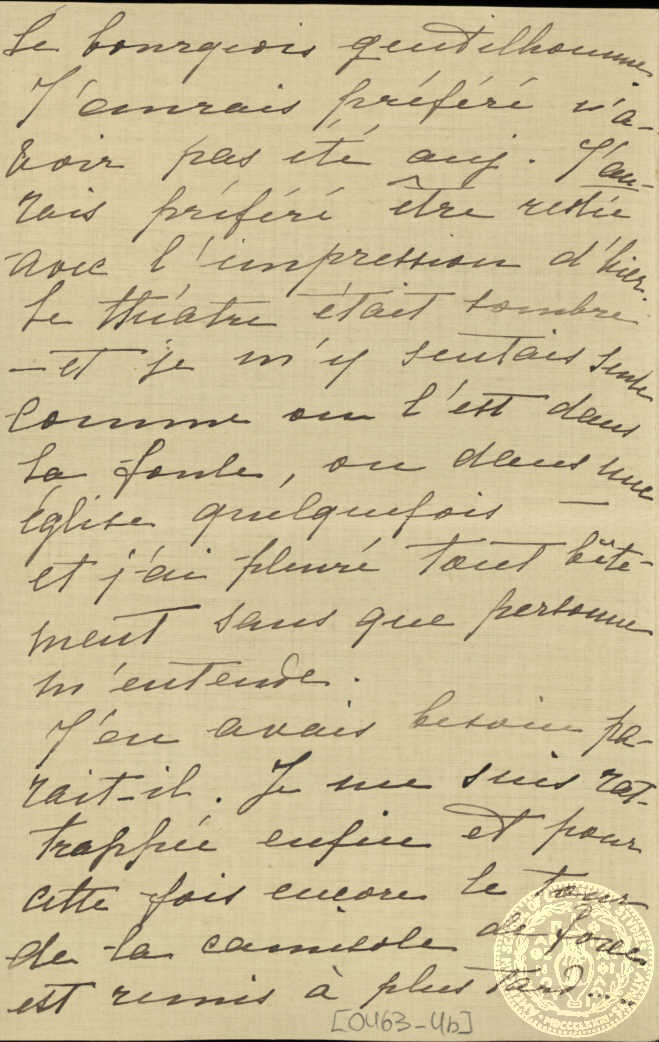 Le bourgeois gentilhomme
J'aurais préféré n'a-
voir pas été auj. J'au-
rais préféré être restée
avec l'impression d'hier.
Le théâtre était sombre
– et je m'y sentais seule
comme on l'est dans
la foule, ou dans une
église quelquefois —
et j'ai pleuré tout bête-
ment sans que personne
m'entende.
J'en avais besoin pa-
rait-il. Je me suis rat-
trappée enfin et pour
cette fois encore le tour
de la camisole de force
est remis à plus tard.....
[0463-4b]